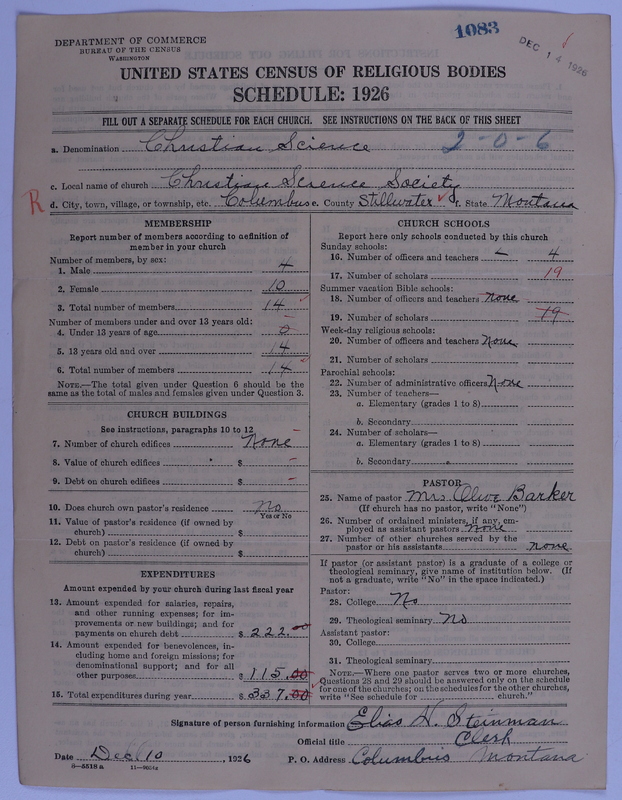 1083
DEC 14 1926
DEPARTMENT OF COMMERCE
BUREAU OF THE CENSUS
WASHINGTON
UNITED STATES CENSUS OF RELIGIOUS BODIES
SCHEDULE: 1926
FILL OUT A SEPARATE SCHEDULE FOR EACH CHURCH. SEE INSTRUCTIONS ON THE BACK OF THIS SHEET
a. Denomination Christian Science 2-0-6
c. Local name of church Christian Science Society
R d. City, town, village, or township, etc. Columbus e. County Stillwater f. State Montana
MEMBERSHIP
Report number of members according to definition of
member in your church
Number of members, by sex:
1. Male 4
2. Female 10
3. Total number of members 14
Number of members under and over 13 years old:
4. Under 13 years of age 0
5. 13 years old and over 14
6. Total number of members 14
NOTE.—The total given under Question 6 should be the
same as the total of males and females given under Question 3.
CHURCH BUILDINGS
See instructions, paragraphs 10 to 12
7. Number of church edifices None
8. Value of church edifices $
9. Debt on church edifices $
10. Does church own pastor's residence No
Yes or No
11. Value of pastor's residence (if owned by
church) $
12. Debt on pastor's residence (if owned by
church) $
EXPENDITURES
Amount expended by your church during last fiscal year
13. Amount expended for salaries, repairs,
and other running expenses; for im-
provements or new buildings; and for
payments on church debt $ 222.00
14. Amount expended for benevolences, in-
cluding home and foreign missions; for
denominational support; and for all
other purposes $ 115.00
15. Total expenditures during year $ 337.00
CHURCH SCHOOLS
Report here only schools conducted by this church
Sunday schools:
16. Number of officers and teachers 4
17. Number of scholars 19
Summer vacation Bible schools:
18. Number of officers and teachers none
19. Number of scholars 19
Week-day religious schools:
20. Number of officers and teachers None
21. Number of scholars
Parochial schools:
22. Number of administrative officers None
23. Number of teachers—
a. Elementary (grades 1 to 8)
b. Secondary
24. Number of scholars—
a. Elementary (grades 1 to 8)
b. Secondary
PASTOR
25. Name of pastor Mrs. Olive Barker
(If church has no pastor, write "None")
26. Number of ordained ministers, if any, em-
ployed as assistant pastors None
27. Number of other churches served by the
pastor or his assistants none
If pastor (or assistant pastor) is a graduate of a college or
theological seminary, give name of institution below. (If
not a graduate, write "No" in the space indicated.)
Pastor:
28. College No
29. Theological seminary No
Assistant pastor:
30. College
31. Theological seminary
NOTE.—Where one pastor serves two or more churches,
Questions 28 and 29 should be answered only on the schedule
for one of the churches; on the schedules for the other churches,
write "See schedule for church."
Signature of person furnishing information Elias H. Steinman
Official title Clerk
Date Dec 10, 1926 P. O. Address Columbus Montana